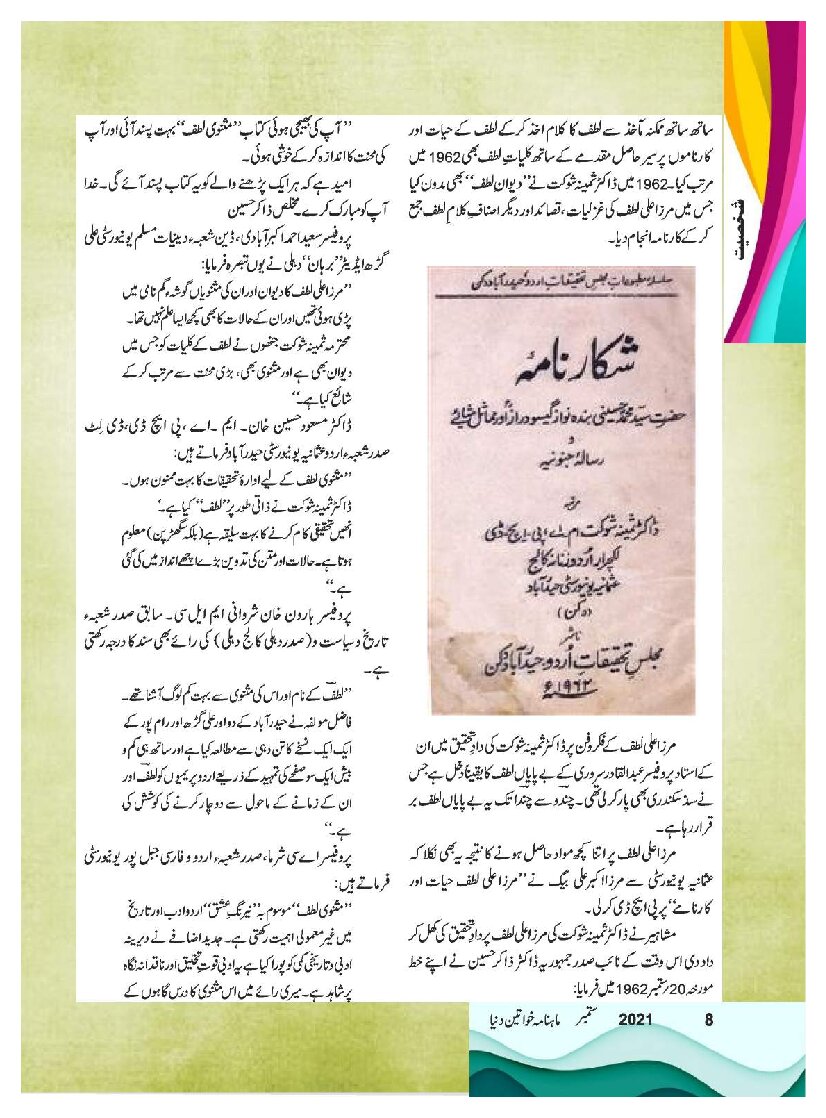 شخصیت
ساتھ ساتھ ممکنہ مآخذ سے لطف کا کلام اخذ کرکے لطف کے حیات اور
کارناموں پر سیر حاصل مقدمے کے ساتھ کلیات لطف بھی 1962 میں
مرتب کیا۔ 1962 میں ڈاکٹر ثمینہ شوکت نے ”دیوان لطف“ بھی مدون کیا
جس میں مرزا علی لطف کی غزلیات، قصائد اور دیگر اصناف کلام لطف جمع
کرکے کارنامہ انجام دیا۔
سلسلہ مطبوعات مجلس تحقیقات اردو حیدرآباد دکن
شکار نامہ
حضرت سید محمد حسینی بندہ نواز گیسو دراز اور مماثل
و
رسالۂ
مرتبہ
ڈاکٹر ثمینہ شوکت ام اے، پی۔ ایچ۔ ڈی
لکچرار اردو زنانہ کالج
عثمانیہ یونیورسٹی حیدرآباد
(دکن)
ناشر
مجلس تحقیقات اردو حیدرآباد دکن
۱۹۶۲ء
مرزا علی لطف کے فکر و فن پر ڈاکٹر ثمینہ شوکت کی داد تحقیق میں ان
کے استاد پروفیسر عبدالقادر سروری کے بے پایاں لطف کا یقیناً دخل ہے جس
نے سد سکندری بھی پار کرلی تھی۔ چندو سے چندا تک یہ بے پایاں لطف بر
قرار رہا ہے۔
مرزا علی لطف پر اتنا کچھ مواد حاصل ہونے کا نتیجہ یہ بھی نکلا کہ
عثمانیہ یونیورسٹی سے مرزا اکبر علی بیگ نے ”مرزا علی لطف حیات اور
کارنامے“ پر پی ایچ ڈی کرلی۔
مشاہیر نے ڈاکٹر ثمینہ شوکت کی مرزا علی لطف پر داد تحقیق کی کھل کر
داد دی اس وقت کے نائب صدر جمہوریہ ڈاکٹر ذاکر حسین نے اپنے خط
مورخہ 20/ستمبر 1962 میں فرمایا:
”آپ کی بھیجی ہوئی کتاب ”مثنوی لطف“ بہت پسند آئی اور آپ
کی محنت کا اندازہ کرکے خوشی ہوئی۔
امید ہے کہ ہر ایک پڑھنے والے کو یہ کتاب پسند آئے گی۔ خدا
آپ کو مبارک کرے۔ مخلص ذاکر حسین
پروفیسر سعید احمد اکبر آبادی، ڈین شعبۂ دینیات مسلم یونیورسٹی علی
گڑھ ایڈیٹر ”برہان“ دہلی نے یوں تبصرہ فرمایا:
”مرزا علی لطف کا دیوان اور ان کی مثنویاں گوشۂ گم نامی میں
پڑی ہوئی تھیں اور ان کے حالات کا بھی کچھ ایسا علم نہیں تھا۔
محترمہ ثمینہ شوکت جنھوں نے لطف کے کلیات کو جس میں
دیوان بھی ہے اور مثنوی بھی، بڑی محنت سے مرتب کرکے
شائع کیا ہے۔“
ڈاکٹر مسعود حسین خان۔ ایم۔ اے، پی ایچ ڈی، ڈی لٹ
صدر شعبۂ اردو عثمانیہ یونیورسٹی حیدرآباد فرماتے ہیں:
”مثنوی لطف کے لیے ادارۂ تحقیقات کا بہت ممنون ہوں۔
ڈاکٹر ثمینہ شوکت نے ذاتی طور پر ”لطف“ کیا ہے۔
انھیں تحقیقی کام کرنے کا بہت سلیقہ ہے (بلکہ سگھڑپن) معلوم
ہوتا ہے۔ حالات اور متن کی تدوین بڑے اچھے انداز میں کی گئی
ہے۔“
پروفیسر ہارون خان شروانی ایم ایل سی۔ سابق صدر شعبۂ
تاریخ و سیاست و (صدر دہلی کالج دہلی) کی رائے بھی سند کا درجہ رکھتی
ہے۔
”لطف کے نام اور اس کی مثنوی سے بہت کم لوگ آشنا تھے۔
فاضل مولفہ نے حیدرآباد کے دو اور علی گڑھ اور رام پور کے
ایک ایک نسخے کا تن دہی سے مطالعہ کیا ہے اور ساتھ ہی کم و
بیش ایک سو صفحے کی تمہید کے ذریعے اردو پریمیوں کو لطف اور
ان کے زمانے کے ماحول سے دوچار کرنے کی کوشش کی
ہے۔“
پروفیسر اے سی شرما، صدر شعبۂ اردو و فارسی جبل پور یونیورسٹی
فرماتے ہیں:
”مثنوی لطف“ موسوم بہ ”نیرنگ عشق“ اردو ادب اور تاریخ
میں غیر معمولی اہمیت رکھتی ہے۔ جدید اضافے نے دیرینہ
ادبی و تاریخی کمی کو پورا کیا ہے یہ ادبی قوت تخلیق اور ناقدانہ نگاہ
پر شاہد ہے۔ میری رائے میں اس مثنوی کا درس گاہوں کے
ماہنامہ خواتین دنیا ستمبر 2021 8